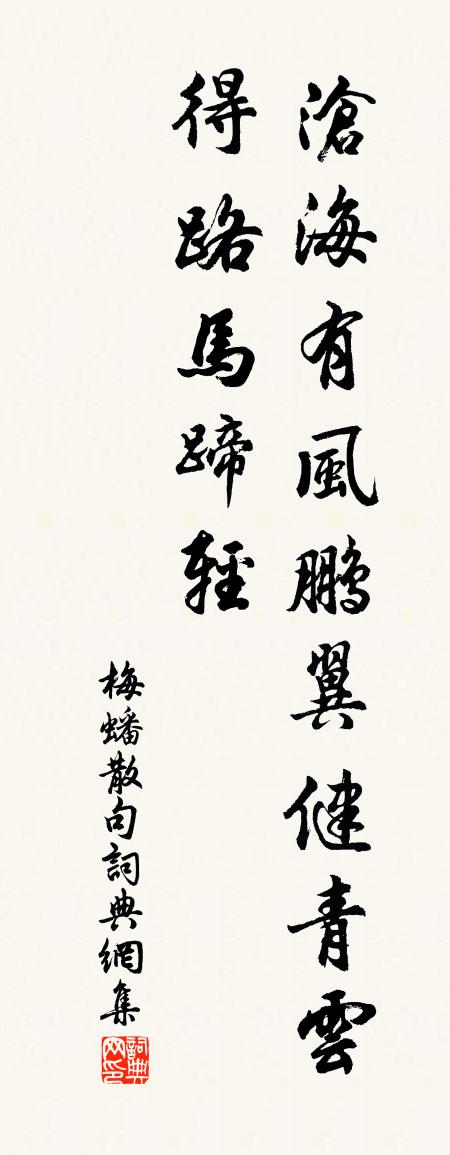 滄海有風鵬翼健青雲
得路馬蹄輕
梅蟠散句詞典網集
詞典网印